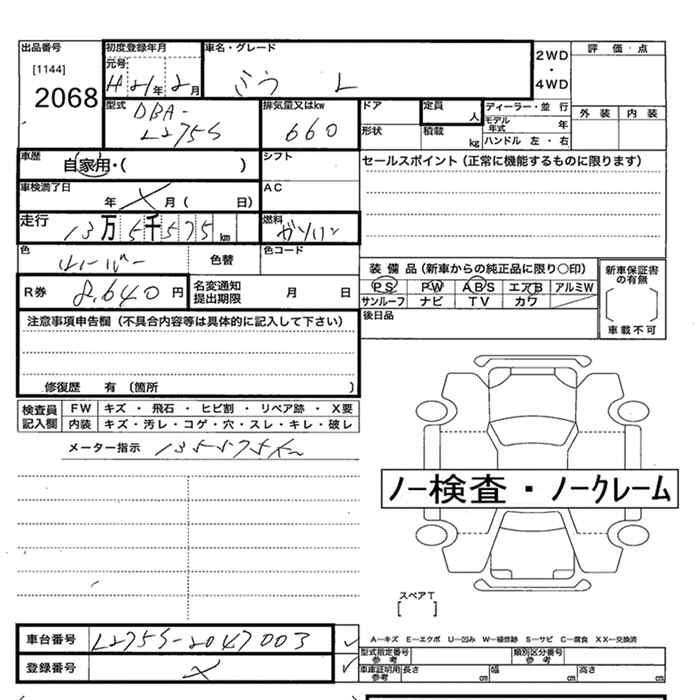 出品番号 初度登録年月 車名・グレード 2WD・4WD 評価・点
[1144] 元号 H21年2月 ミラ L
2068 外装 内装
型式 DBA-L275S 排気量又はkw 660 ドア 定員 人 ディーラー・並行
形状 積載 kg モデル年式 年
ハンドル 左・右
車歴 自家用・( ) シフト セールスポイント(正常に機能するものに限ります)
車検満了日 年 X 月( 日) AC
走行 13万5千575km 燃料 ガソリン
色 シルバー 色替 色コード
装備品(新車からの純正品に限り○印) 新車保証書の有無
R券 8,640円 名変通知提出期限 月 日 PS PW ABS エアB アルミW
サンルーフ ナビ TV カワ 車載不可
注意事項申告欄(不具合内容等は具体的に記入して下さい) 後日品
修復歴 有(箇所 )
検査員記入欄 FW キズ・飛石・ヒビ割・リペア跡・X要
内装 キズ・汚レ・コゲ・穴・スレ・キレ・破レ
メーター指示 135575Km
ノー検査・ノークレーム
スペアT
[ ]
車台番号 L275S-2047003 A-キズ E-エクボ U-凹み W-補修跡 S-サビ C-腐食 XX-交換済
型式指定番号 参考 類別区分番号 参考
登録番号 X 車庫証明用参考 長さ cm 幅 cm 高さ cm